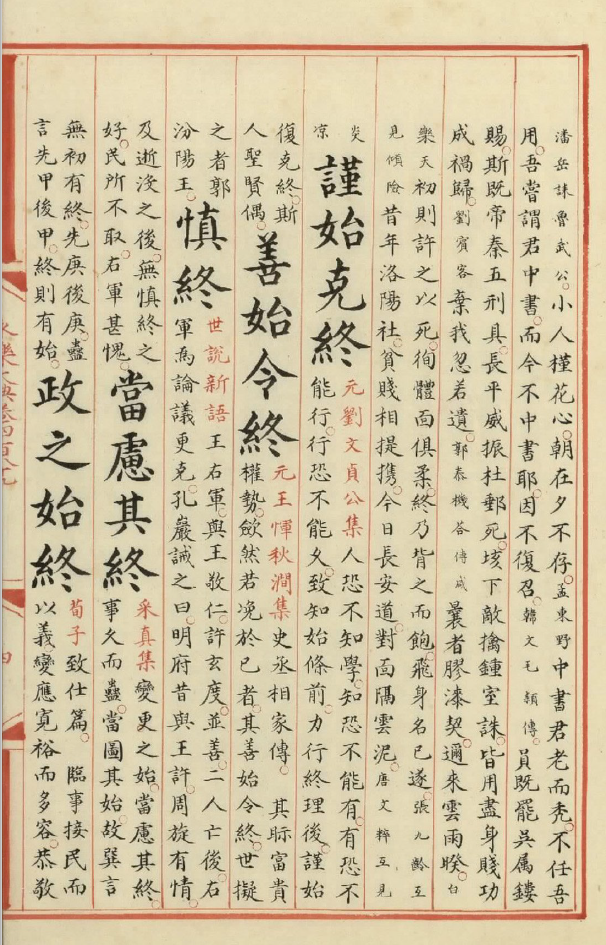 潘岳誄魯武公小人槿花心朝在夕不存孟東野中書君老而禿不任吾
用吾嘗謂君中書而今不中書耶因不復召韓文毛穎傳員既罷吳属鏤
賜斯既帝秦五刑具長平威振杜郵死垓下敵擒鍾室誅皆用盡身賤功
成禍歸劉賓客棄我忽若遺郭泰機荅傅咸曩者膠漆契邇來雲雨睽白
樂天初則許之以死徇體面俱柔終乃背之而飽飛身名已遂張九齡互
見傾險昔年洛陽社貧賤相提携今日長安道對面隔雲泥唐文粹互見
炎
凉
謹始克終
元劉文貞公集人恐不知學知恐不能有有恐不
能行行恐不能久致知始條前力行終理後謹始
復克終斯
人聖賢偶
善始令終
元王惲秋澗集史丞相家傳 其眎富貴
權勢歛然若凂於已者其善始令終世擬
之者郭
汾陽王
慎終
世說新語王右軍與王敬仁許玄度並善二人亡後右
軍為論議更克孔巖誡之曰明府昔與王許周旋有情
及逝没之後無慎終之
好民所不取右軍甚愧
當慮其終
采真集變更之始當慮其終
事久而蠱當圖其始故巽言
無初有終先庚後庚蠱
言先甲後甲終則有始
政之始終
荀子致仕篇 臨事接民而
以義變應寬裕而多容恭敬